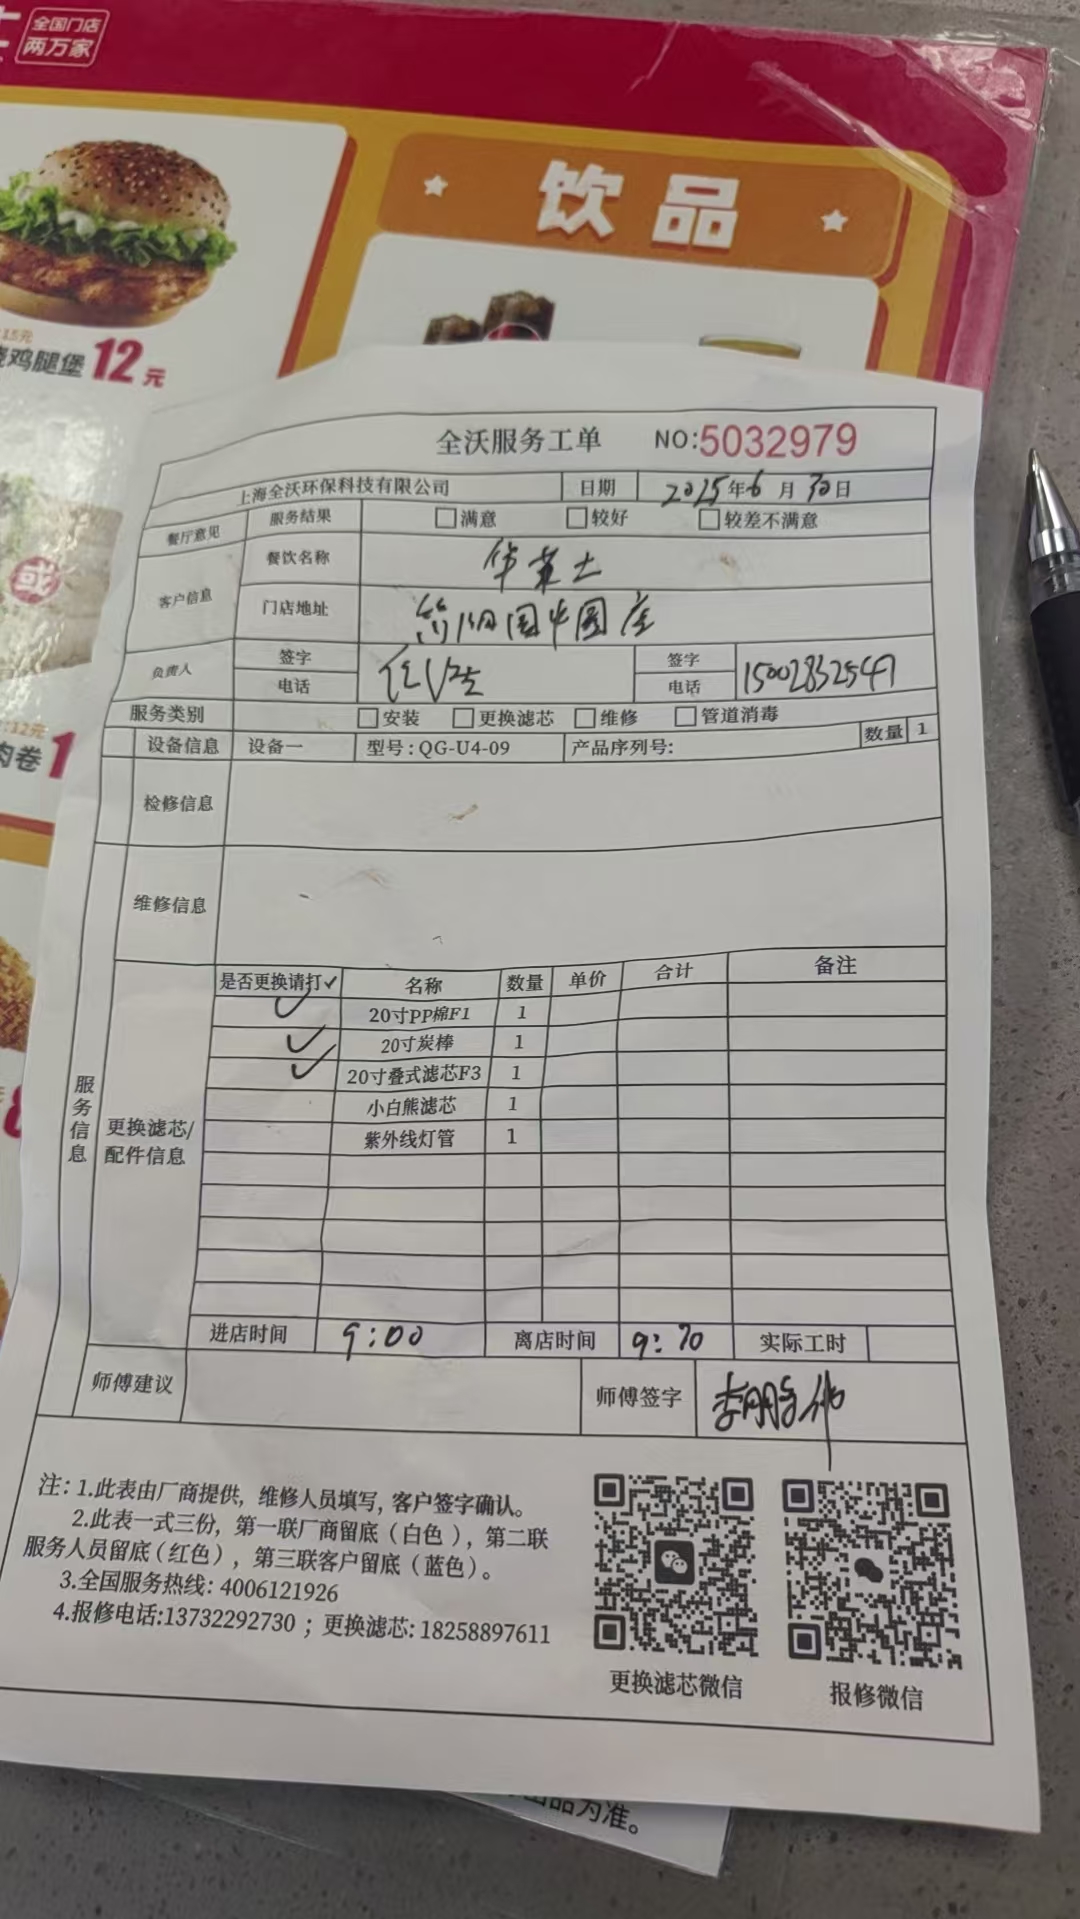 全国门店
两万家
饮品
15元
烧鸡腿堡 12元
或
12元
肉卷 1
全沃服务工单 NO:5032979
上海全沃环保科技有限公司 日期 2025年6月30日
餐厅意见 服务结果 □满意 □较好 □较差不满意
客户信息 餐饮名称 华莱士
门店地址 简阳国中国店
负责人 签字 签字
电话 电话 15002832547
服务类别 □安装 □更换滤芯 □维修 □管道消毒
设备信息 设备一 型号:QG-U4-09 产品序列号: 数量 1
检修信息
维修信息
服务信息
更换滤芯/配件信息
是否更换请打✓ 名称 数量 单价 合计 备注
✓ 20寸PP棉F1 1
✓ 20寸炭棒 1
✓ 20寸叠式滤芯F3 1
小白熊滤芯 1
紫外线灯管 1
进店时间 9:00 离店时间 9:30 实际工时
师傅建议 师傅签字 李鹏伟
注：1.此表由厂商提供，维修人员填写，客户签字确认。
2.此表一式三份，第一联厂商留底（白色），第二联
服务人员留底（红色），第三联客户留底（蓝色）。
3.全国服务热线：4006121926
4.报修电话:13732292730；更换滤芯:18258897611
更换滤芯微信 报修微信
出品为准。